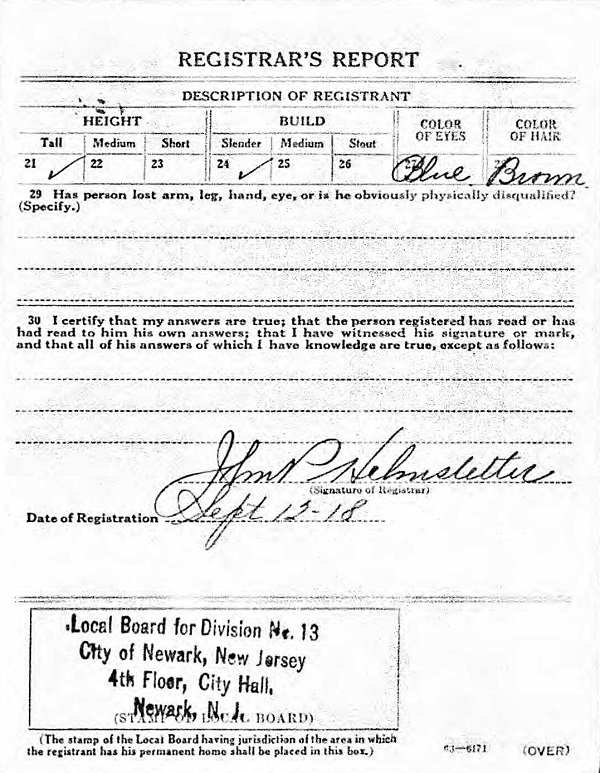 REGISTRAR'S REPORT
DESCRIPTION OF REGISTRANT
HEIGHT BUILD COLOR OF EYES COLOR OF HAIR
Tall Medium Short Slender Medium Stout
21 ✓ 22 23 24 ✓ 25 26 Blue Brown
29 Has person lost arm, leg, hand, eye, or is he obviously physically disqualified?
(Specify.)
30 I certify that my answers are true; that the person registered has read or has
had read to him his own answers; that I have witnessed his signature or mark,
and that all of his answers of which I have knowledge are true, except as follows:
John P Helmstetter
(Signature of Registrar)
Date of Registration Sept 12-18
Local Board for Division No. 13
City of Newark, New Jersey
4th Floor, City Hall,
Newark, N. J.
(STAMP OF LOCAL BOARD)
(The stamp of the Local Board having jurisdiction of the area in which
the registrant has his permanent home shall be placed in this box.)
03—6171 (OVER)